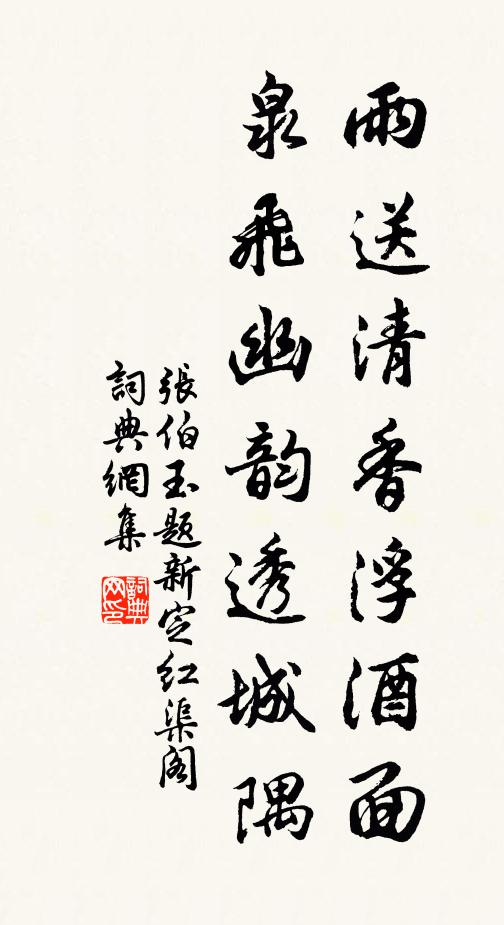 雨送清香浮酒面
泉飛幽韵透城隅
張伯玉题新定红渠阁
詞典網集
詞典网印